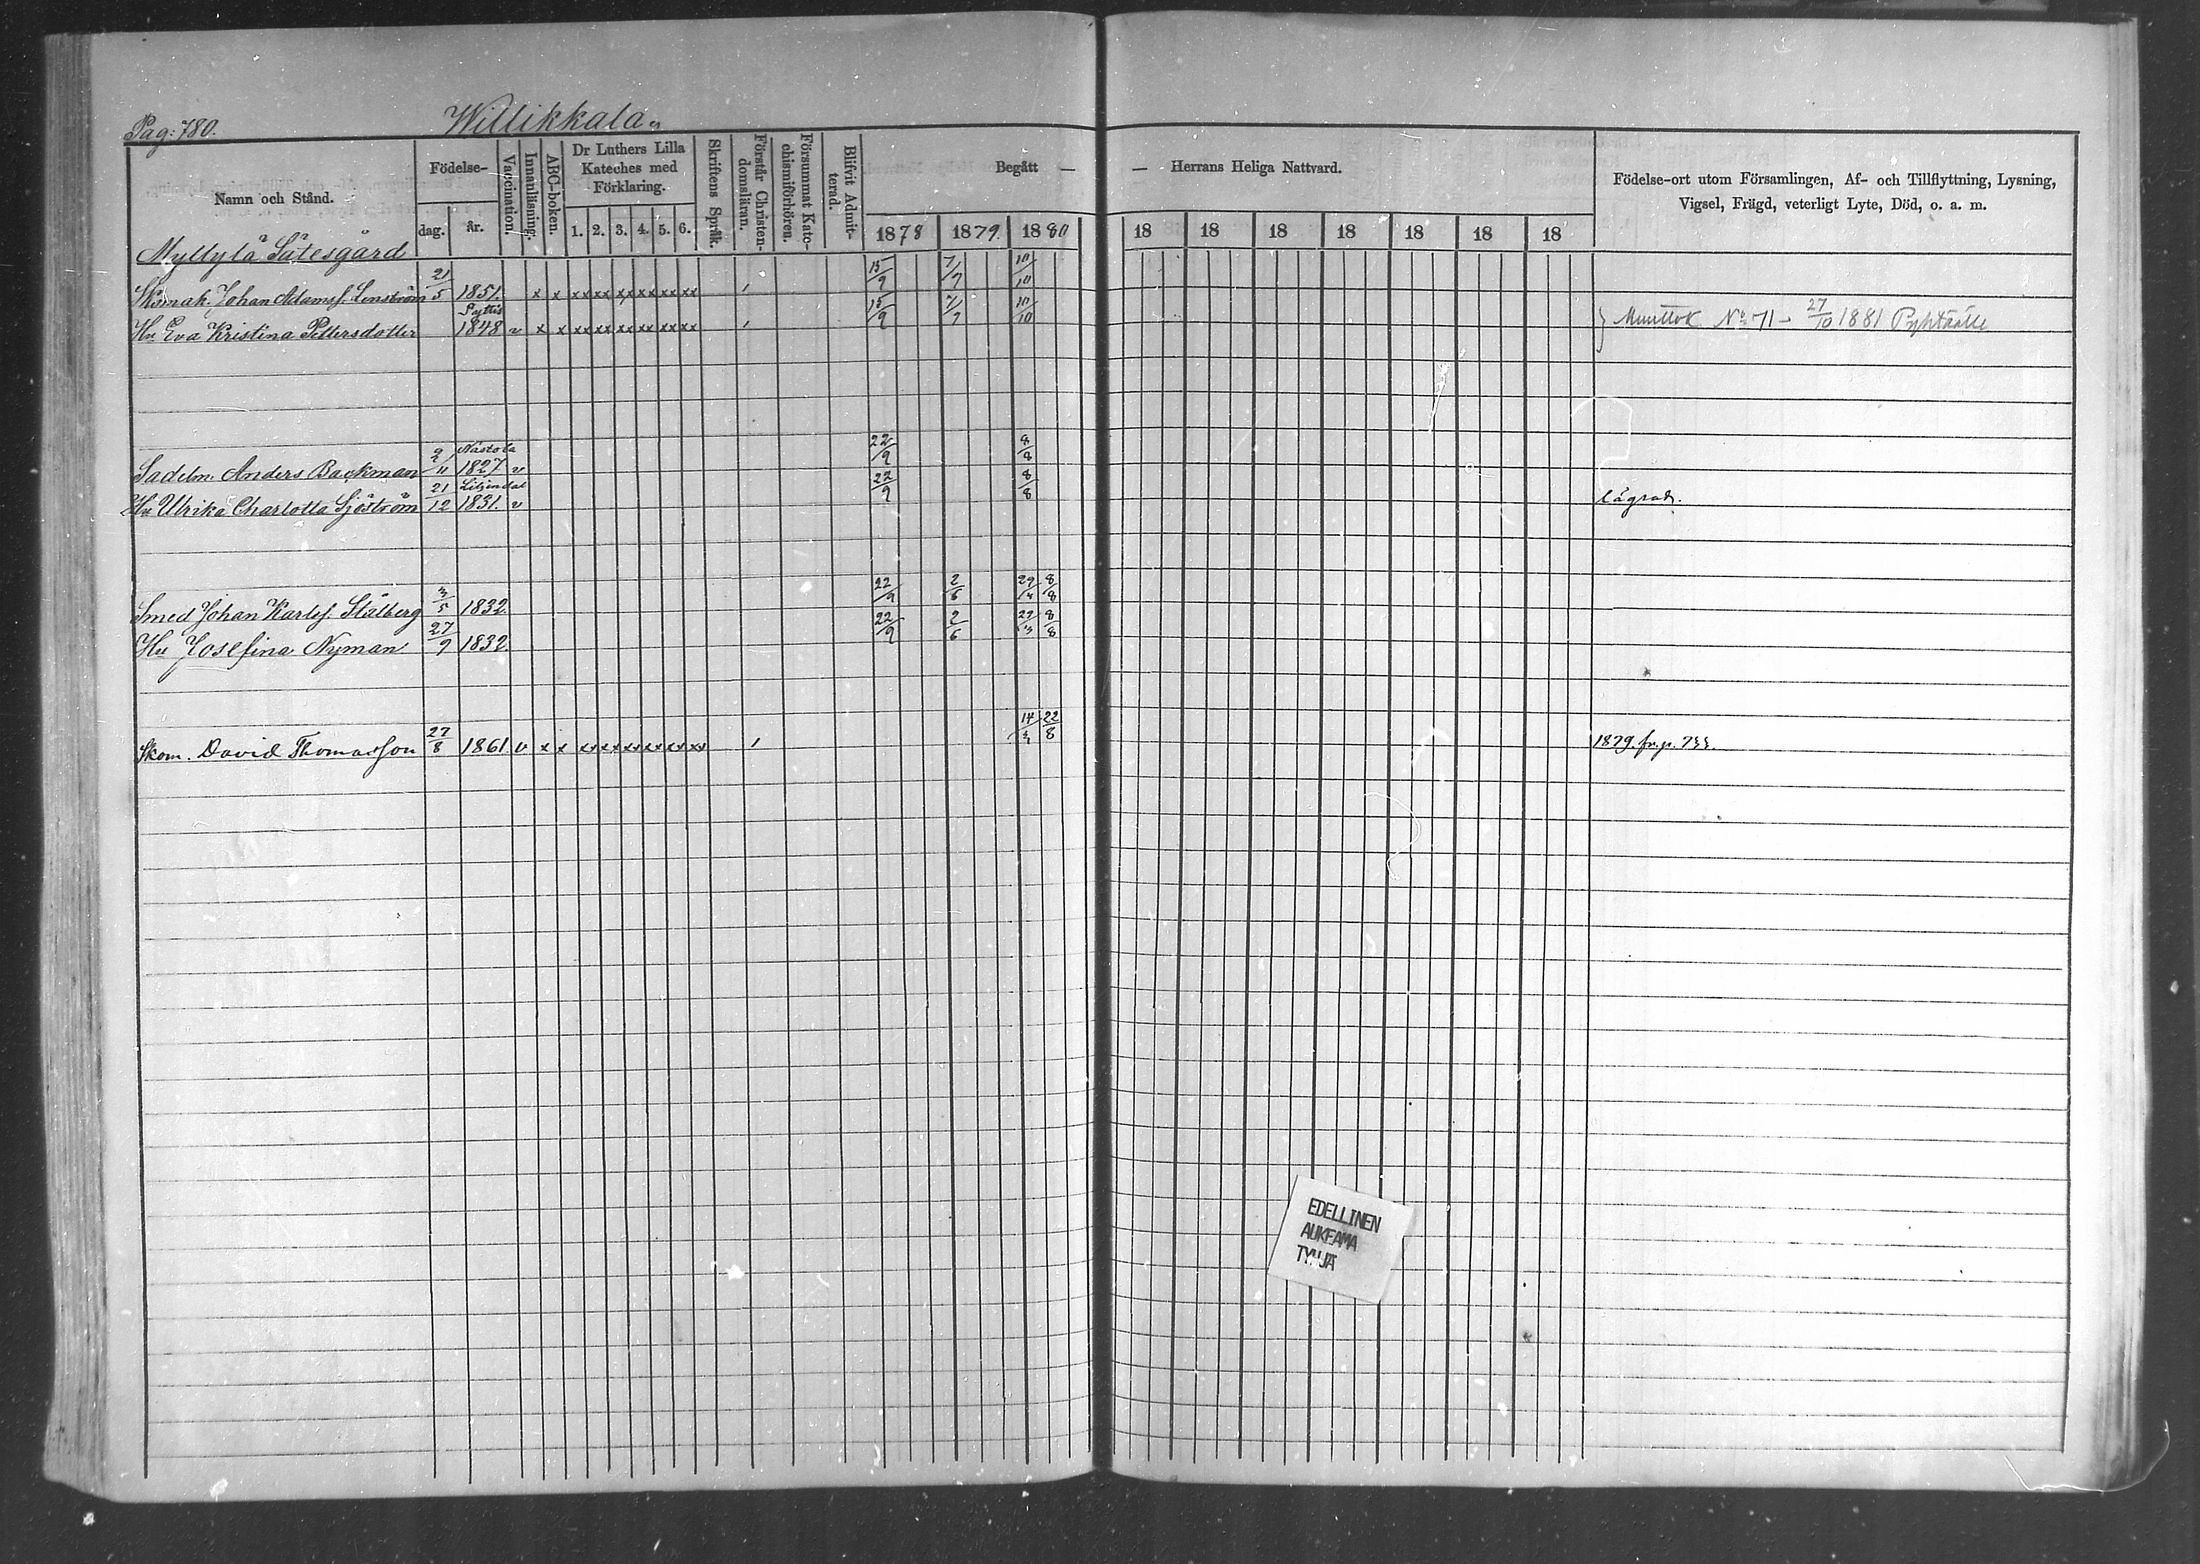 Pag: 780. Willikkala.
Namn och Stånd.
Födelse-
dag. år.
Vaccination.
Innanläsning.
ABC-boken.
Dr Luthers Lilla
Kateches med
Förklaring.
1. 2. 3. 4. 5. 6.
Skriftens Språk.
Förstår Christen-
domsläran.
Försummat Kate-
chismiförhören.
Blifvit Admit-
terad.
Begått — — Herrans Heliga Nattvard.
1878 1879. 1880 18 18 18 18 18 18 18
Födelse-ort utom Församlingen, Af- och Tillflyttning, Lysning,
Vigsel, Frägd, veterligt Lyte, Död, o. a. m.
Myllylä Sätesgård
Skomak. Johan Adamsf. Lenström 21/5 1851. x x xx xx xx xx xx xx 15/9 7/7 10/10
Hu Eva Kristina Pettersdotter Pyttis 1848 v x x xx xx xx xx xx xx 15/9 7/7 10/10 Muuttok No 71 - 27/10 1881 Pyhtäälle
Sadelm. Anders Backman 9/11 Nastola 1827 v 22/9 8/8
Hu Ulrika Charlotta Sjöström 21/12 Liljendal 1831. v 22/9 8/8 lägrad.
Smed Johan Karlsf. Stålberg 3/5 1832. 22/9 2/6 8/8
Hu Josefina Nyman 27/9 1832. 22/9 2/6 8/8
Skom. David Thomasson 27/8 1861 v x x xx xx xx xx xx xx 22/8 1879. fr. p. 733.
EDELLINEN
AUKEAMA
TYHJÄ